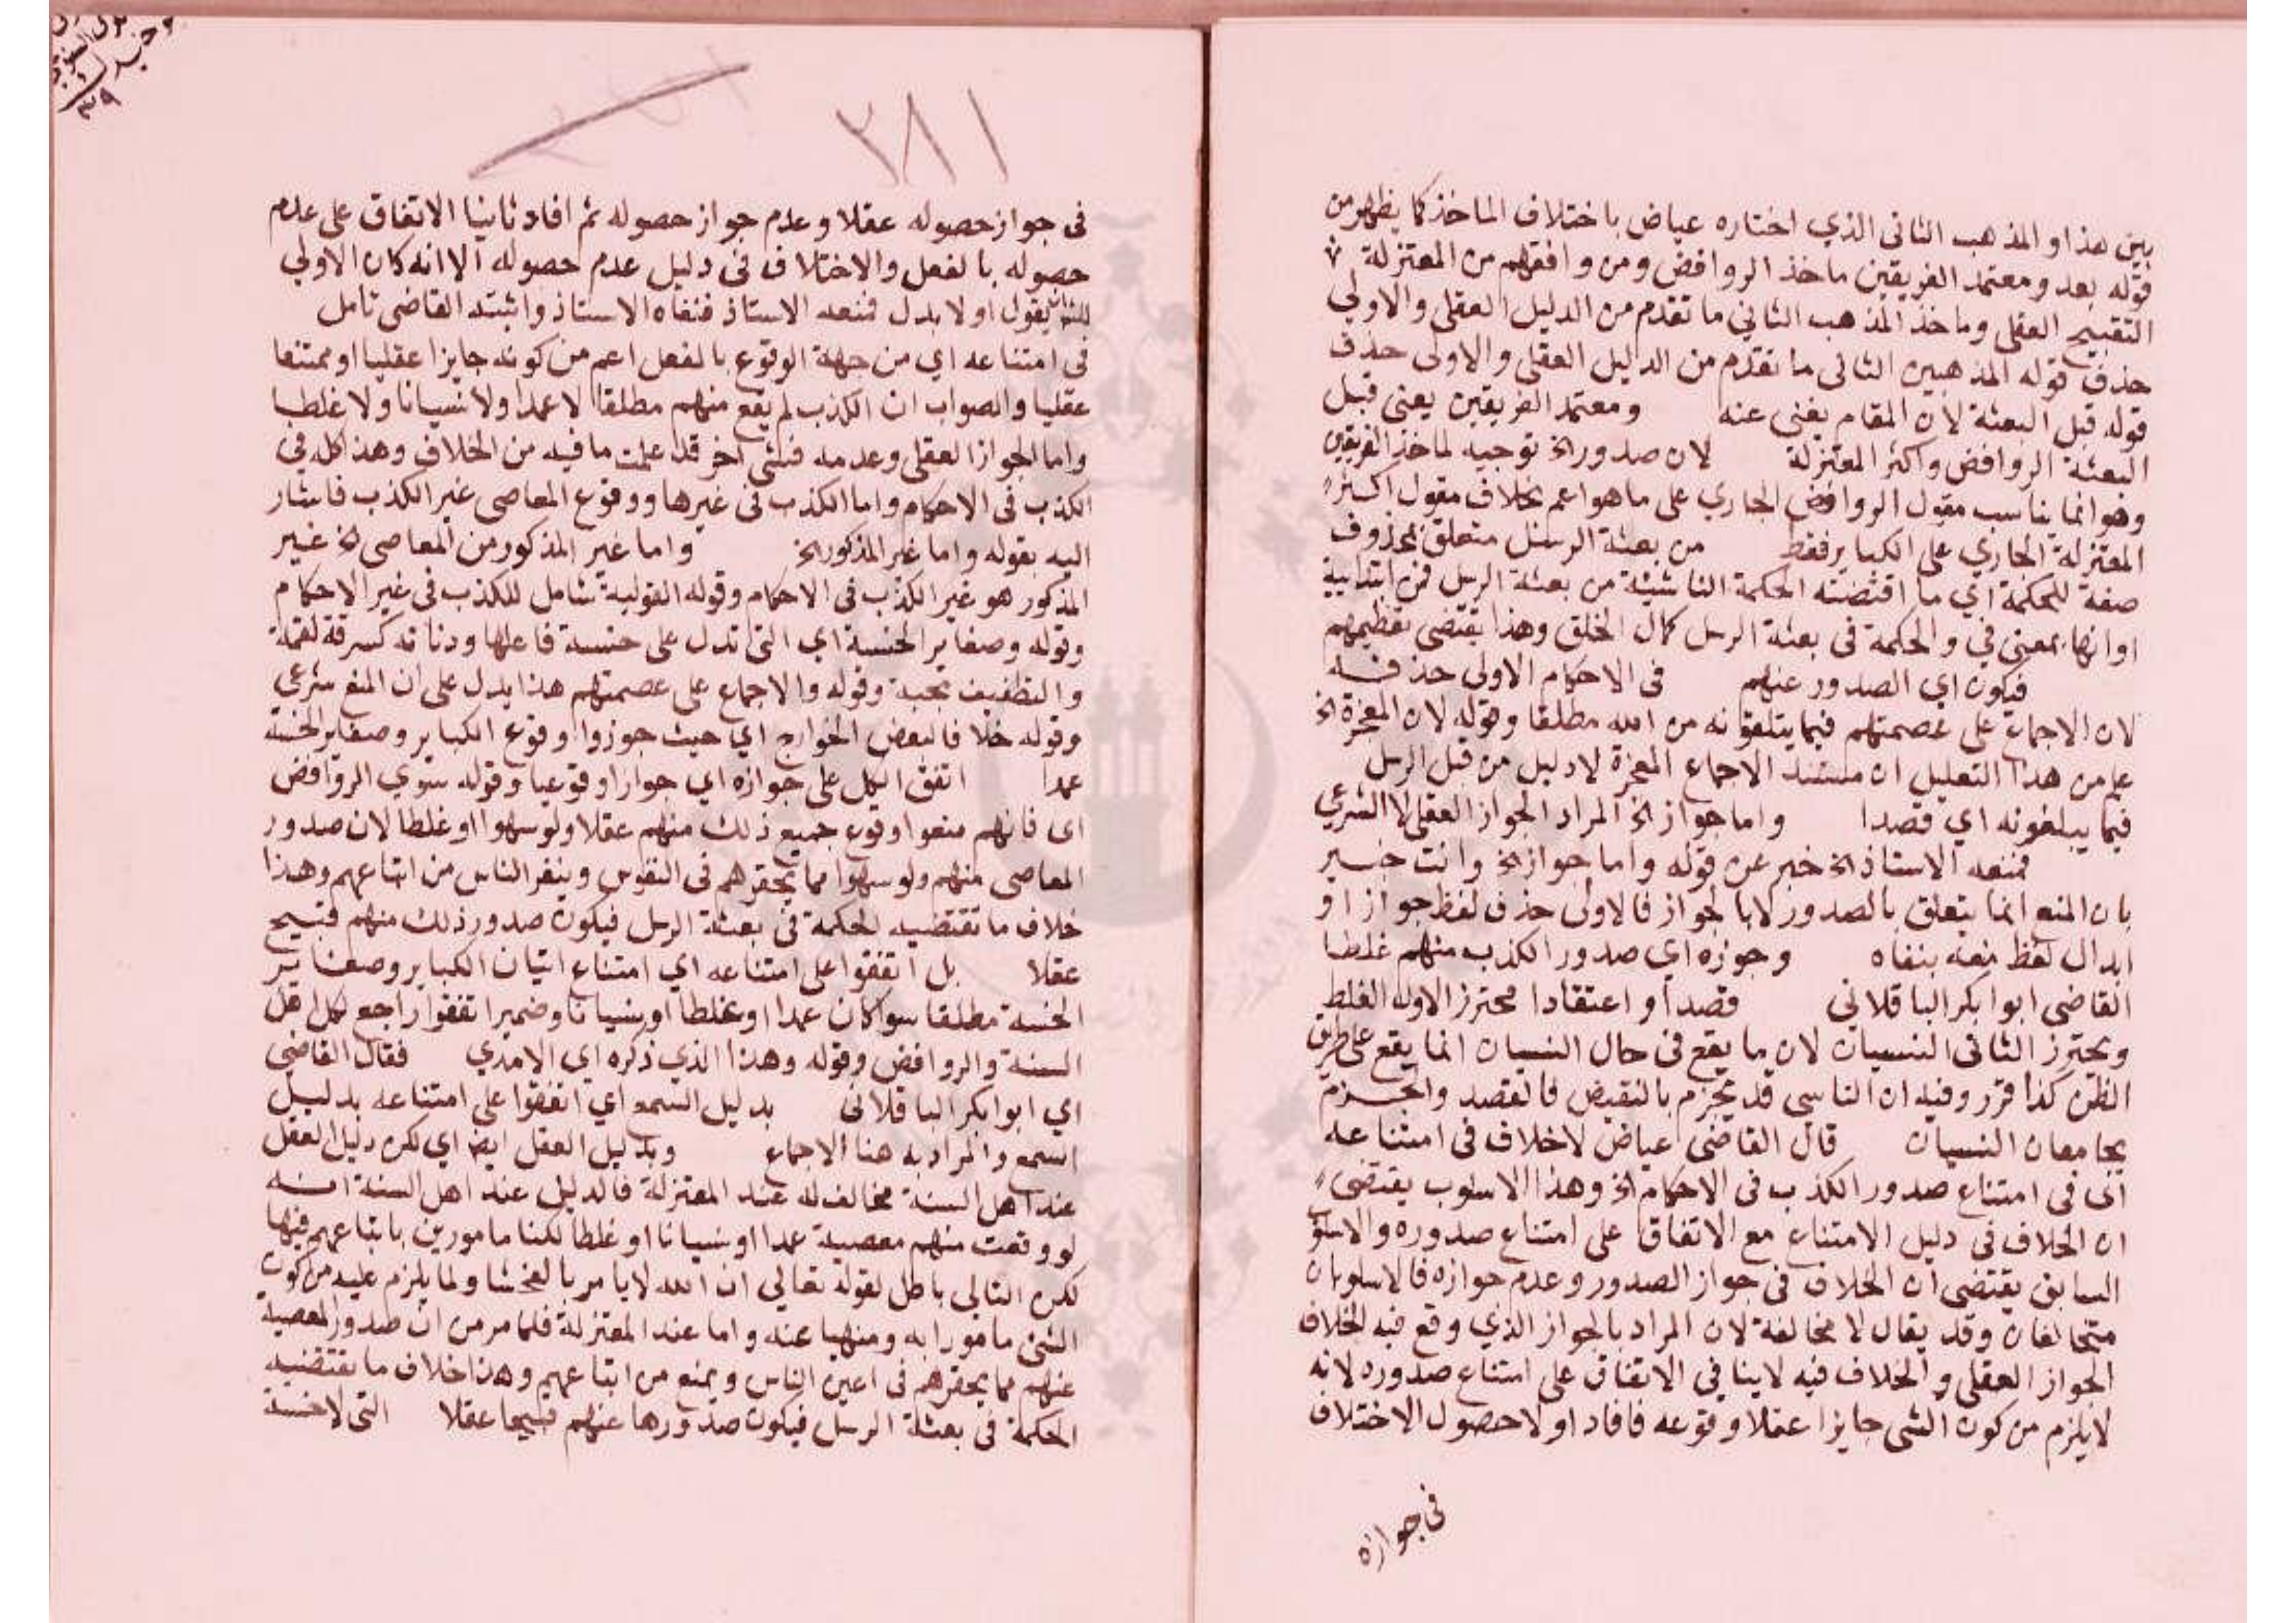 بين هذا والمذهب الثاني الذي اختاره عياض باختلاف الماخذ كما يظهر من
قوله بعد ومعتمد الفريقين ماخذ الروافض ومن وافقهم من المعتزلة
التقبيح العقلي وماخذ المذهب الثاني ما تقدم من الدليل العقلي والاولي
حذف قوله المذهبين الثاني ما تقدم من الدليل العقلي والاولى حذف
قوله قبل البعثة لان المقام يغني عنه ومعتمد الفريقين يعني قبل
البعثة الروافض واكثر المعتزلة لان صدور الخ توجيه لماخذ الفريقين
وهو انما يناسب مقول الروافض الجاري على ما هو اعم بخلاف مقول اكثر
المعتزلة الجاري على الكباير فقط من بعثة الرسل متعلق بمحذوف
صفة للحكمة اي ما اقتضته الحكمة الناشيئة من بعثة الرسل فمن ابتدايية
او انها بمعنى في والحكمة في بعثة الرسل كمال الخلق وهذا يقتضي تعظيمهم
فيكون اي الصدور عنهم في الاحكام الاولى حذفه
لان الاجماع على عصمتهم فيما يتلقونه من الله مطلقا وقوله لان المعجزة الخ
علم من هذا التعليل ان مستند الاجماع المعجزة لا دليل من قبل الرسل
فيما يبلغونه اي قصدا واما جواز الخ المراد الجواز العقلي لا الشرعي
فمنعه الاستاذ الخ خبر عن قوله واما جواز الخ وانت خبير
بان المنع انما يتعلق بالصدور لا بالجواز فالاولى حذف لفظ جواز او
ابدال لفظ منعه بنفاه وجوزه اي صدور الكذب منهم غلطا
القاضي ابوا بكر الباقلاني قصدا او اعتقادا محترز الاول الغلط
ومحترز الثاني النسيان لان ما يقع في حال النسيان انما يقع على طريق
الظن كذا قرر وفيه ان الناسي قد يجزم بالنقيض فالقصد والجزم
يجامعان النسيان قال القاضي عياض لا خلاف في امتناعه
اي في امتناع صدور الكذب في الاحكام الخ وهذا الاسلوب يقتضي
ان الخلاف في دليل الامتناع مع الاتفاق على امتناع صدوره والاسلوب
السابق يقتضي ان الخلاف في جواز الصدور وعدم جوازه فالاسلوبان
متخالفان وقد يقال لا مخالفة لان المراد بالجواز الذي وقع فيه الخلاف
الجواز العقلي والخلاف فيه لا ينافي الاتفاق على امتناع صدوره لانه
لا يلزم من كون الشي جايزا عقلا وقوعه فافاد اولا حصول الاختلاف
في جوازه
٢٨١
في جواز حصوله عقلا وعدم جواز حصوله ثم افاد ثانيا الاتفاق على عدم
حصوله بالفعل والاختلاف في دليل عدم حصوله الا انه كان الاولي
للشارح يقول اولا بدل فمنعه الاستاذ فنفاه الاستاذ واثبته القاضي تامل
في امتناعه اي من جهة الوقوع بالفعل اعم من كونه جايزا عقليا او ممتنعا
عقليا والصواب ان الكذب لم يقع منهم مطلقا لا عمدا ولا نسيانا ولا غلطا
واما الجواز العقلي وعدمه فشي اخر قد علمت ما فيه من الخلاف وهذا كله في
الكذب في الاحكام واما الكذب في غيرها ووقوع المعاصي غير الكذب فاشار
اليه بقوله واما غير المذكور الخ واما غير المذكور من المعاصي الخ غير
المذكور هو غير الكذب في الاحكام وقوله القولية شامل للكذب في غير الاحكام
وقوله وصغاير الخسة اي التي تدل على خسة فاعلها ودناته كسرقة لقمة
والتطفيف بحبة وقوله والاجماع على عصمتهم هذا يدل على ان المنع شرعي
وقوله خلافا لبعض الخوارج اي حيث جوزوا وقوع الكباير وصغاير الخسة
عمدا اتفق الكل على جوازه اي جوازا وقوعيا وقوله سوي الروافض
اي فانهم منعوا وقوع جميع ذلك منهم عقلا ولو سهوا او غلطا لان صدور
المعاصي منهم ولو سهوا مما يحقرهم في النفوس وينفر الناس من اتباعهم وهذا
خلاف ما تقتضيه الحكمة في بعثة الرسل فيكون صدور ذلك منهم قبيح
عقلا بل اتفقوا على امتناعه اي امتناع اتيان الكباير وصغاير
الخسة مطلقا سوا كان عمدا او غلطا او نسيانا وضمير اتفقوا راجع لكل اهل
السنة والروافض وقوله وهذا الذي ذكره اي الامدي فقال القاضي
اي ابوا بكر الباقلاني بدليل السمع اي اتفقوا على امتناعه بدليل
السمع والمراد به هنا الاجماع وبدليل العقل ايضا اي لكن دليل العقل
عند اهل السنة مخالف له عند المعتزلة فالدليل عند اهل السنة انه
لو وقعت منهم معصية عمدا او نسيانا او غلطا لكنا مامورين باتباعهم فيها
لكن التالي باطل لقوله تعالي ان الله لا يامر بالفحشا ولما يلزم عليه من كون
الشي مامورا به ومنهيا عنه واما عند المعتزلة فلما مر من ان صدور المعصية
عنهم مما يحقرهم في اعين الناس ويمنع من اتباعهم وهذا خلاف ما تقتضيه
الحكمة في بعثة الرسل فيكون صدورها عنهم قبيحا عقلا التي لا خسة